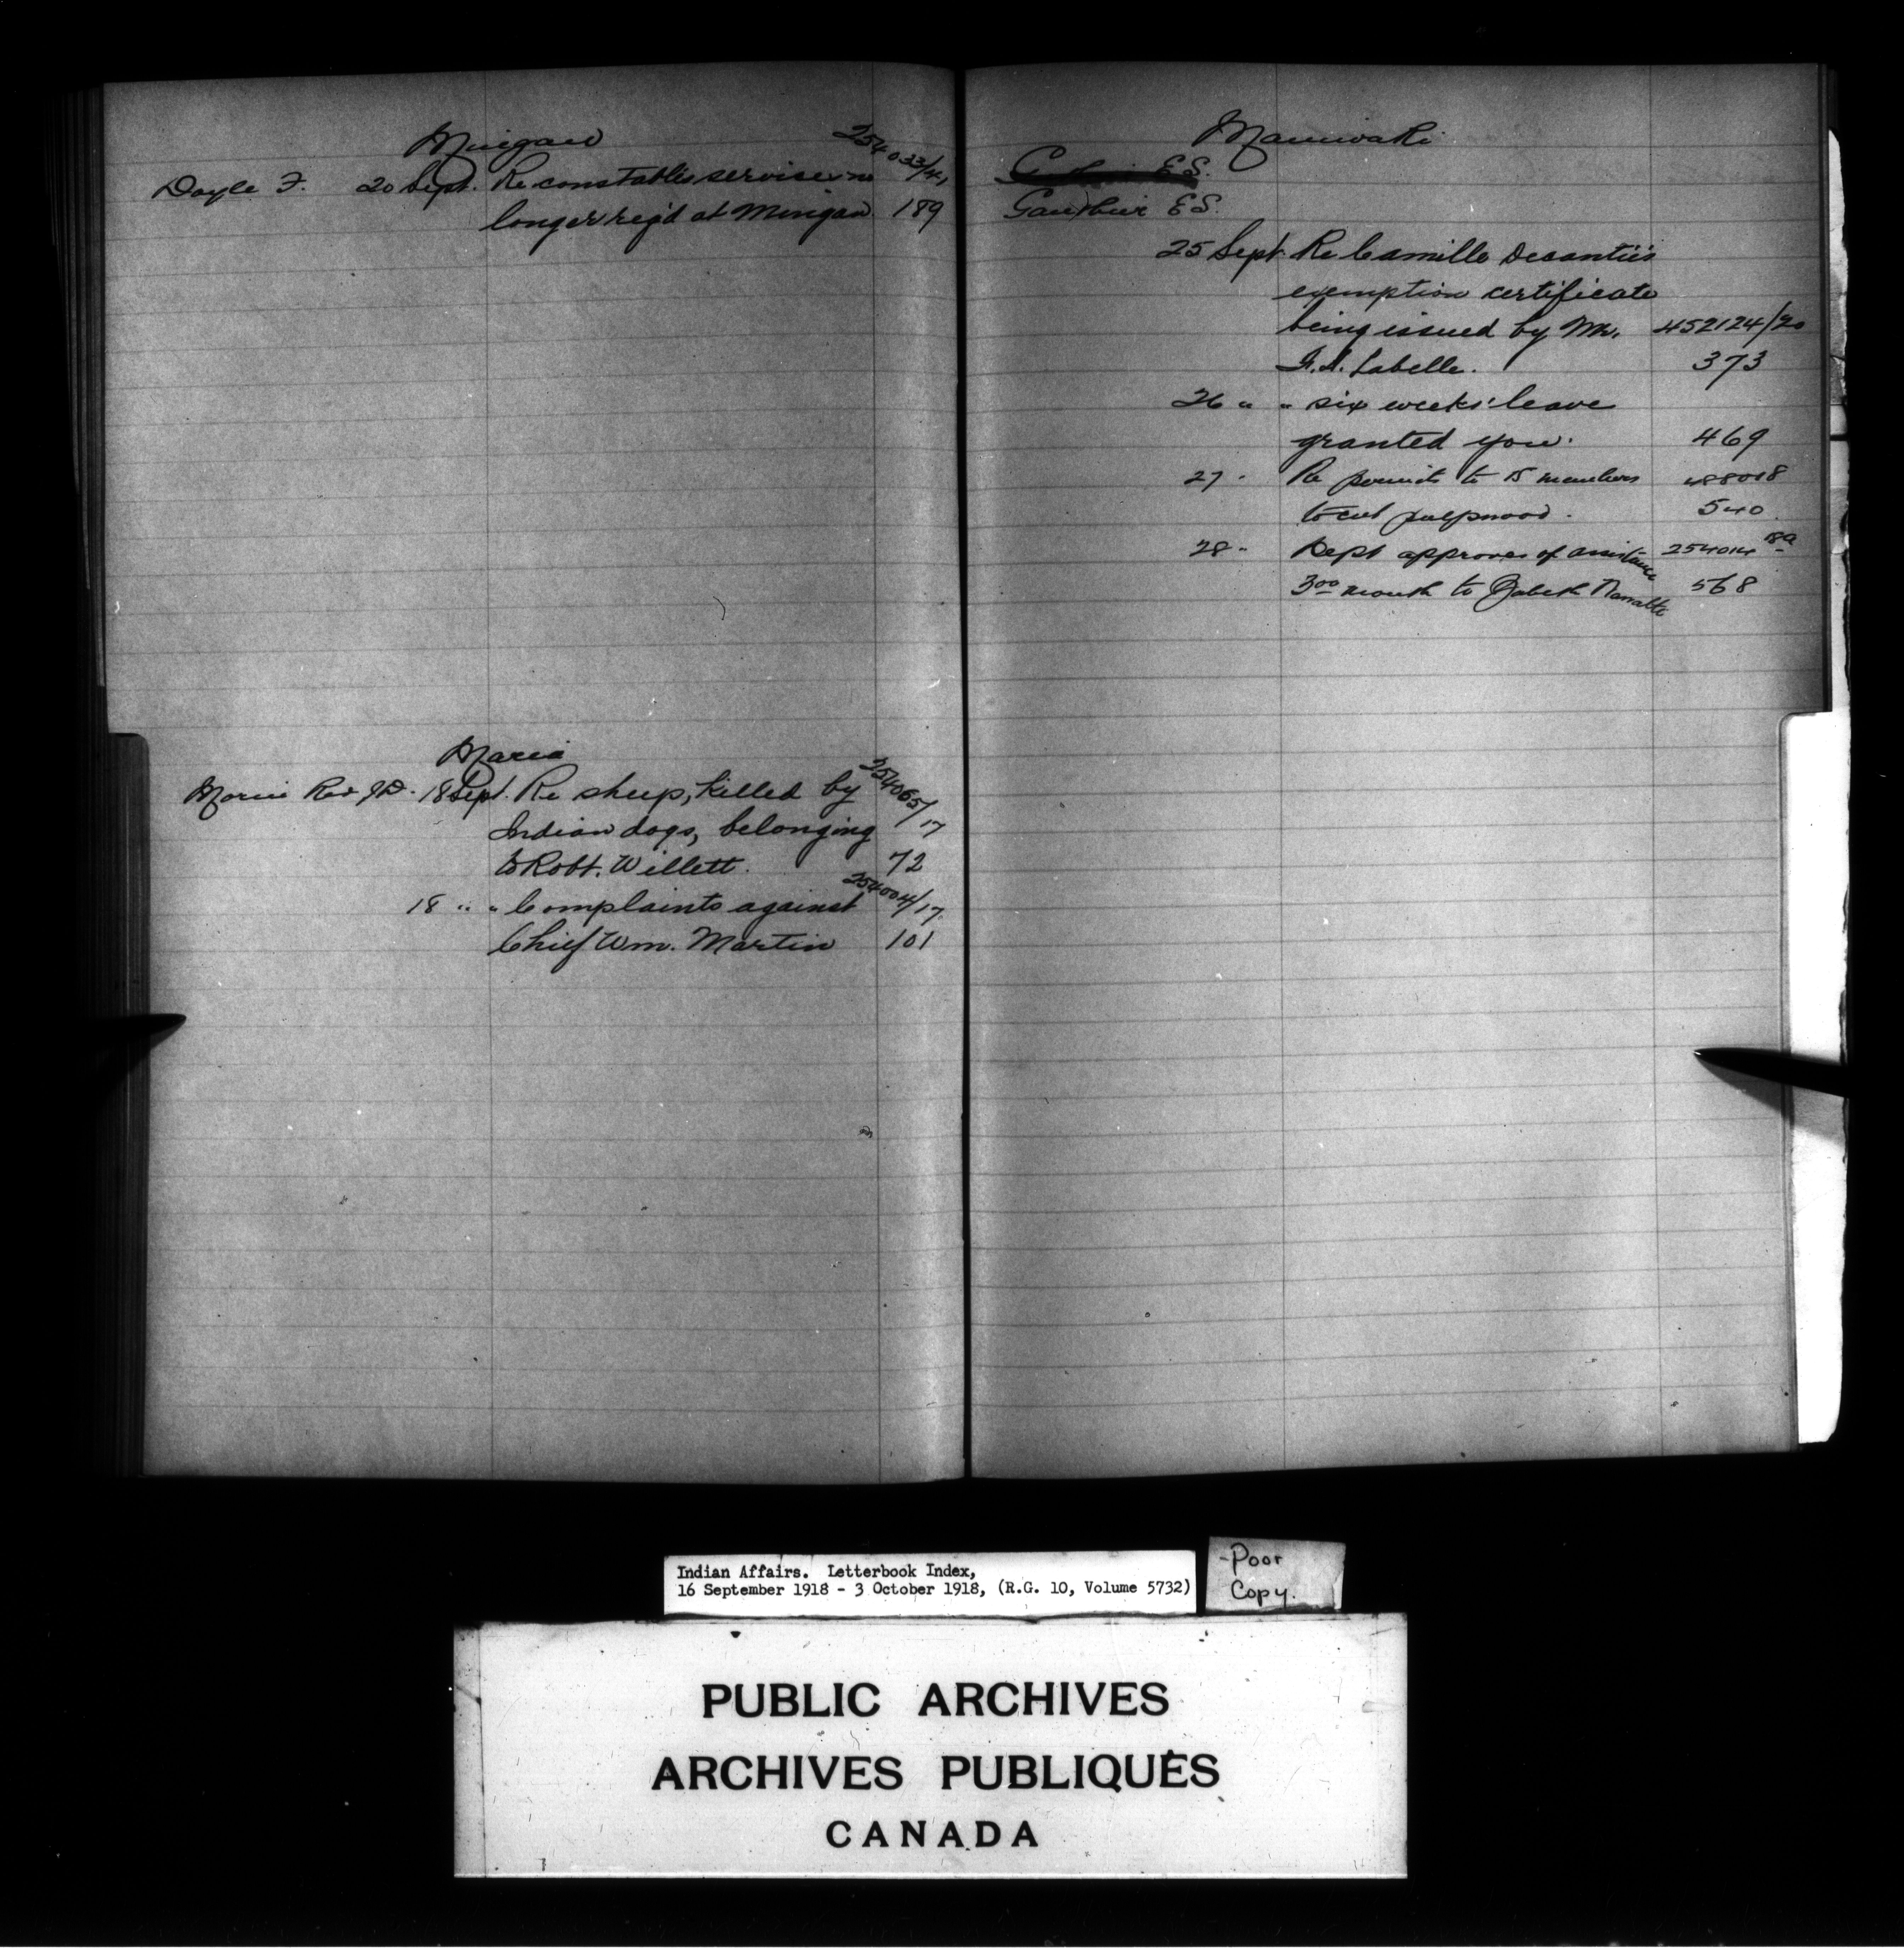 Mingan
254033/41
Doyle F. 20 Sept. Re constables services no
longer req'd at Mingan 189
Maria
254065/17
Morin Rev J.D. 18 Sept. Re sheep, killed by
Indian dogs, belonging
to Robt. Willett. 72
254004/17
18 " " Complaints against
Chief Wm. Martin 101
Maniwaki
E S.
Gauthier E S.
25 Sept. Re Camille Decontie's
exemption certificate
being issued by Mr. 452124/20
Labelle. 373
26 " " six weeks' leave
granted you. 469
27 " Re permits to 15 members 488018
to cut pulpwood. 540
28 " Dept approves of assistance 254014 18a
3.00 month to 568
Indian Affairs. Letterbook Index,
16 September 1918 - 3 October 1918, (R.G. 10, Volume 5732)
-Poor
Copy.
PUBLIC ARCHIVES
ARCHIVES PUBLIQUES
CANADA